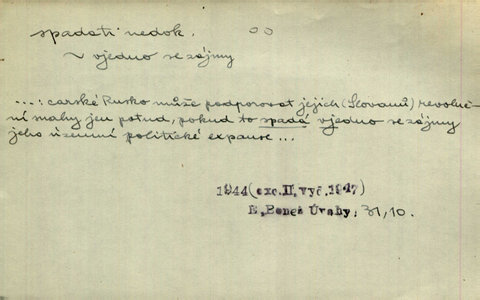 spadati nedok.
~ vjedno se zájmy
...: carské Rusko může podporovat jejich (Slovanů) revoluč-
ní snahy jen potud, pokud to spadá vjedno se zájmy
jeho územní politické expanse...
1944(exc.II,vyč.1947)
E.Beneš Úvahy, 31, 10.